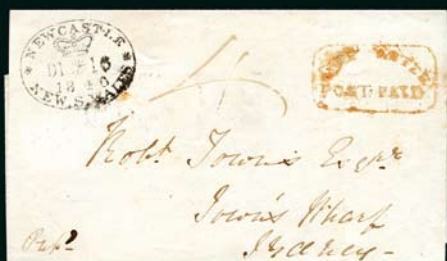 NEWCASTLE
DE 16
NEW.S.WALES
POST PAID
4
Robt Towns Esqre
Towns Wharf
Sydney